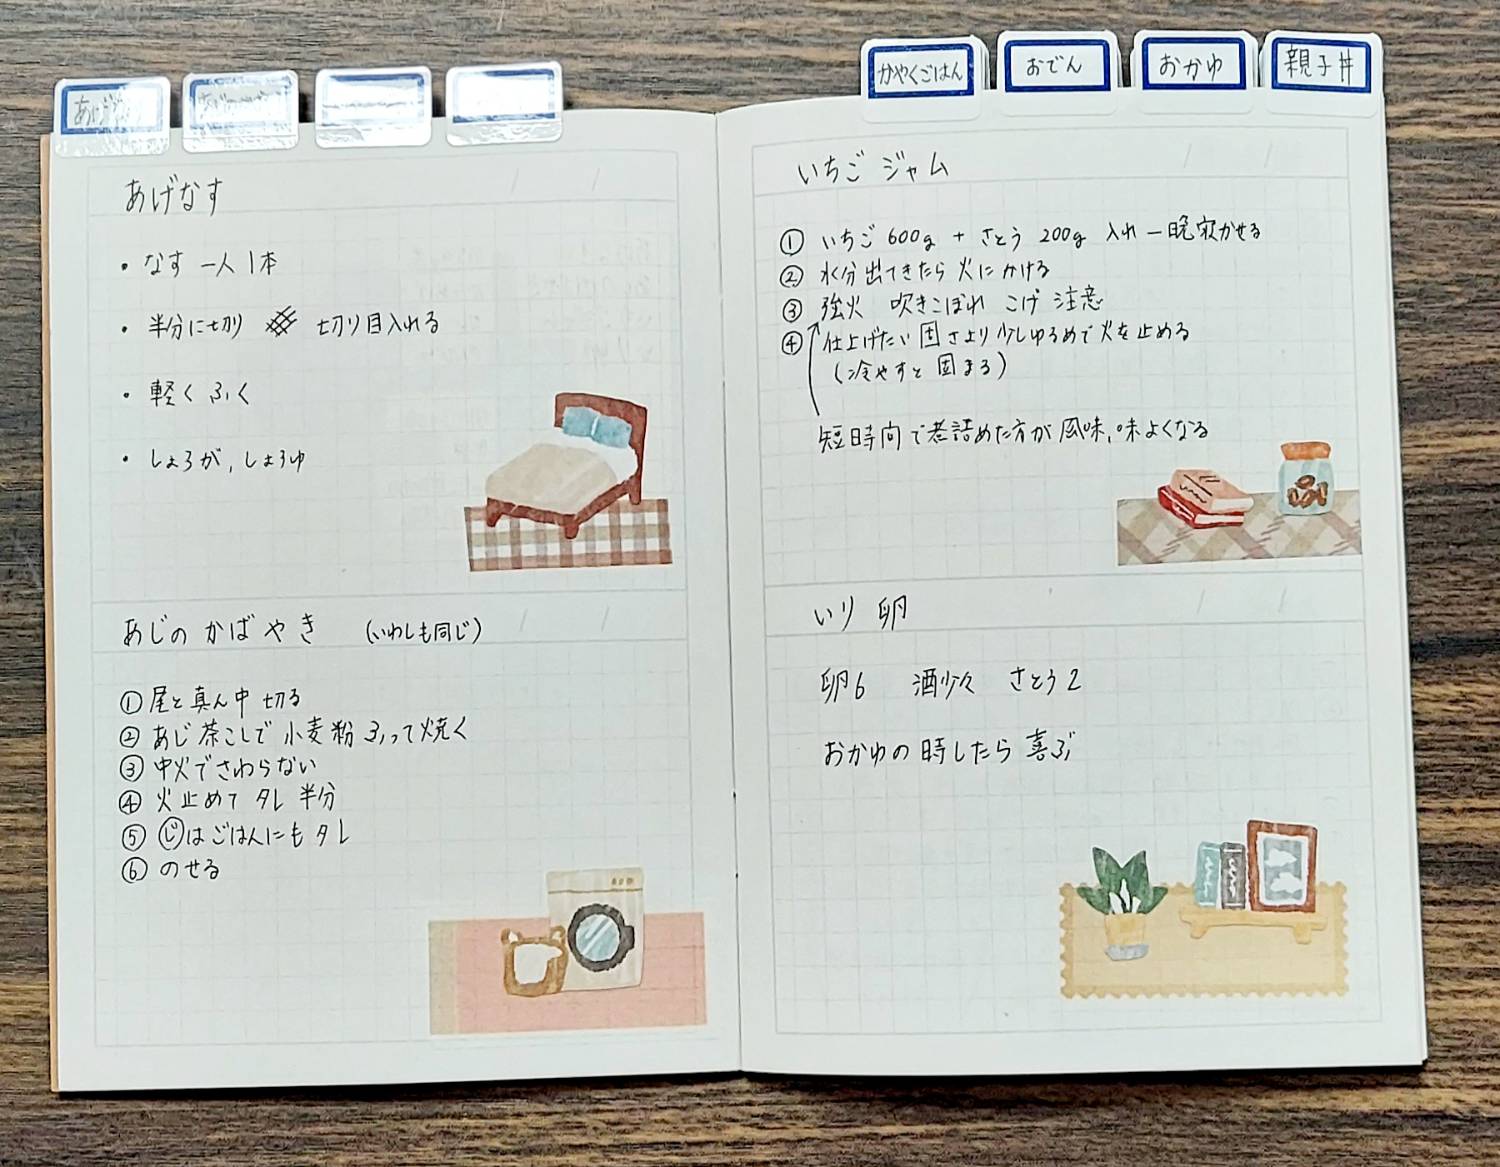 かやくごはん
おでん
おかゆ
親子丼
あげなす
・なす 一人1本
・半分に切り 切り目入れる
・軽くふく
・しょうが, しょうゆ
あじのかばやき (いわしも同じ)
① 尾と真ん中切る
② あじ茶こしで小麦粉ふって焼く
③ 中火でさわらない
④ 火止めてタレ半分
⑤ じはごはんにもタレ
⑥ のせる
いちごジャム
① いちご600g + さとう200g 入れ一晩寝かせる
② 水分出てきたら火にかける
③ 強火 吹きこぼれ こげ 注意
④ 仕上げたい固さより少しゆるめで火を止める
(冷やすと固まる)
短時間で煮詰めた方が風味、味よくなる
いり卵
卵6 酒少々 さとう2
おかゆの時したら喜ぶ